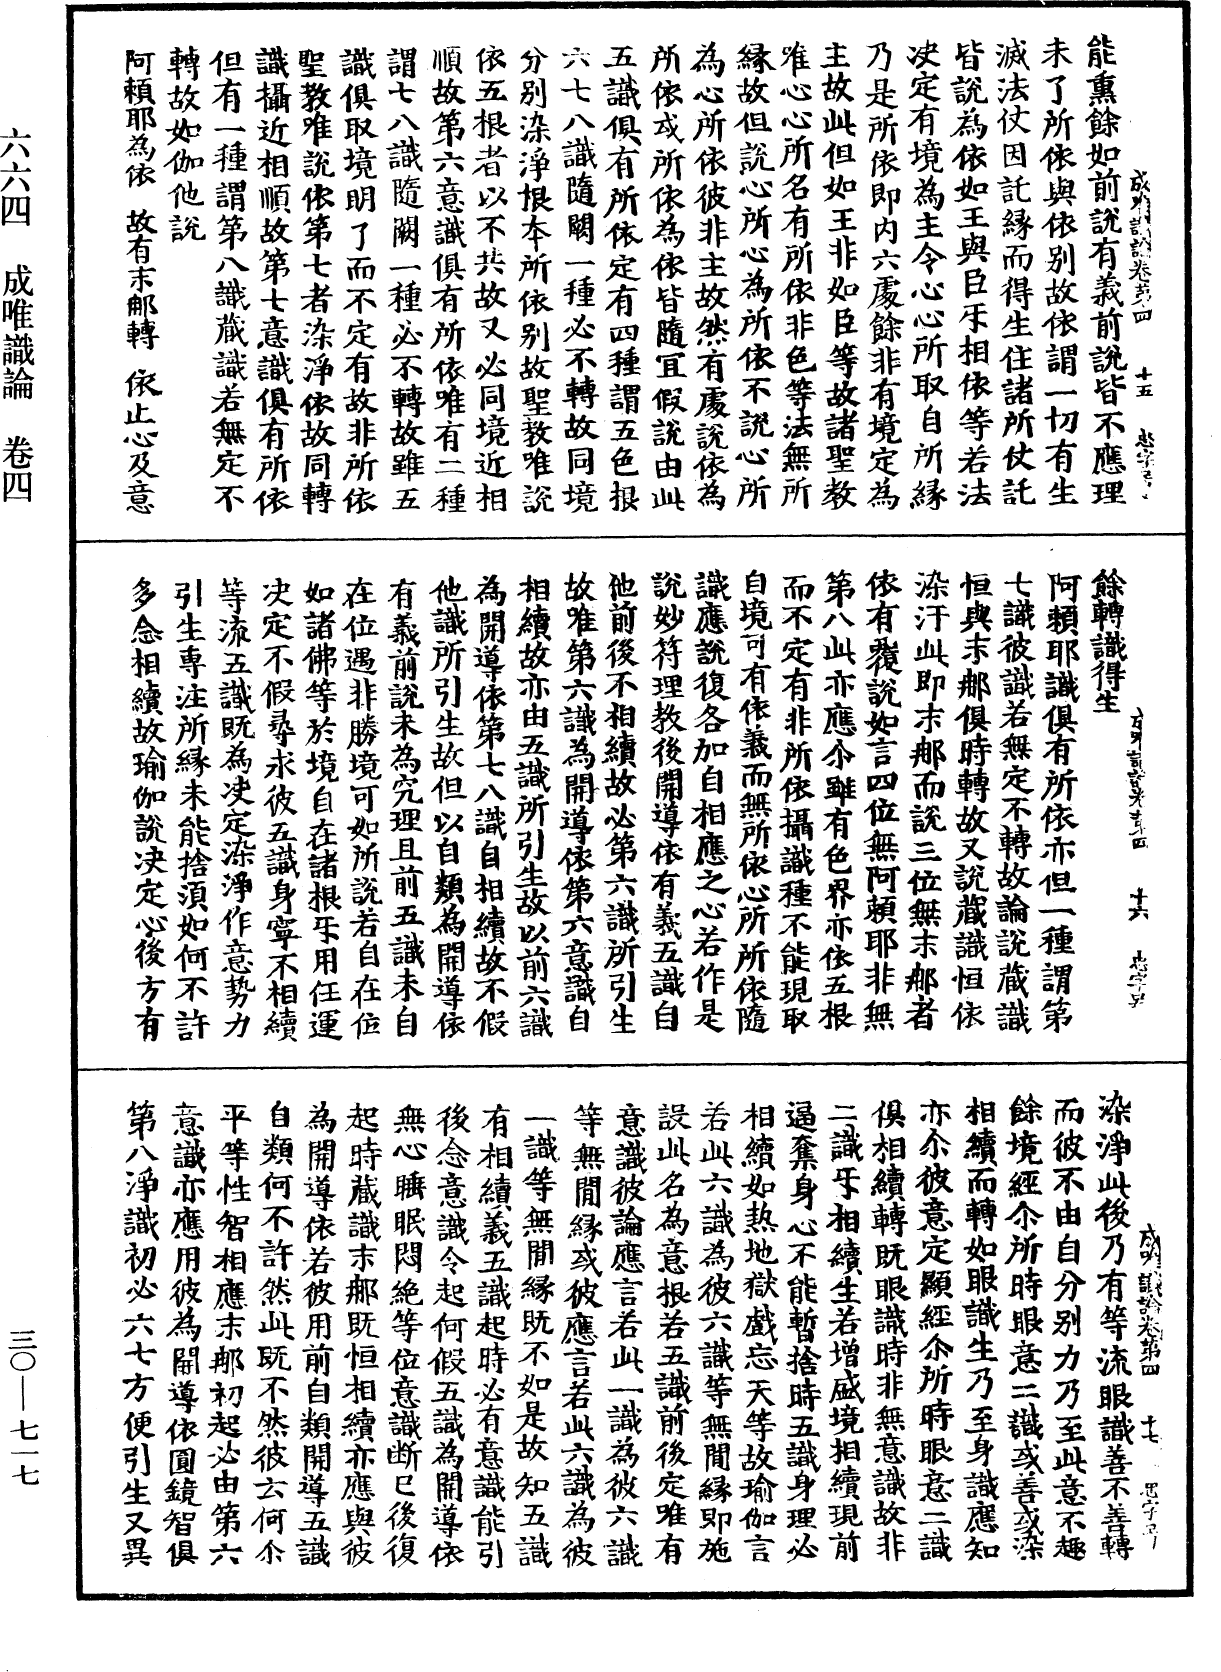 能熏餘如前說有義前說皆不應理
未了所依與依別故依謂一切有生
滅法仗因託緣而得生住諸所仗託
皆說為依如王與臣㸦相依等若法
决定有境為主令心心所取自所緣
乃是所依即内六處餘非有境定為
主故此但如王非如臣等故諸聖教
唯心心所名有所依非色等法無所
緣故但說心所心為所依不說心所
為心所依彼非主故然有處說依為
所依或所依為依皆隨宜假說由此
五識俱有所依定有四種謂五色根
六七八識隨闕一種必不轉故同境
分別染淨根本所依別故聖教唯說
依五根者以不共故又必同境近相
順故第六意識俱有所依唯有二種
謂七八識隨闕一種必不轉故雖五
識俱取境明了而不定有故非所依
聖教唯說依第七者染淨依故同轉
識攝近相順故第七意識俱有所依
但有一種謂第八識藏識若無定不
轉故如伽他說
阿賴耶為依　故有末那轉　依止心及意
成唯識論卷第四　十五　忠字号
餘轉識得生
阿賴耶識俱有所依亦但一種謂第
七識彼識若無定不轉故論說藏識
恒與末那俱時轉故又說藏識恒依
染汙此即末那而說三位無末那者
依有覆說如言四位無阿賴耶非無
第八此亦應尒雖有色界亦依五根
而不定有非所依攝識種不能現取
自境可有依義而無所依心所所依隨
識應說復各加自相應之心若作是
說妙符理教後開導依有義五識自
他前後不相續故必第六識所引生
故唯第六識為開導依第六意識自
相續故亦由五識所引生故以前六識
為開導依第七八識自相續故不假
他識所引生故但以自類為開導依
有義前說未為究理且前五識未自
在位遇非勝境可如所說若自在位
如諸佛等於境自在諸根㸦用任運
决定不假尋求彼五識身寧不相續
等流五識既為决定染淨作意勢力
引生專注所緣未能捨須如何不許
多念相續故瑜伽說决定心後方有
成唯識論卷第四　十六　忠字号
染淨此後乃有等流眼識善不善轉
而彼不由自分別力乃至此意不趣
餘境經尒所時眼意二識或善或染
相續而轉如眼識生乃至身識應知
亦尒彼意定顯經尒所時眼意二識
俱相續轉既眼識時非無意識故非
二識㸦相續生若增盛境相續現前
逼奪身心不能暫捨時五識身理必
相續如熱地獄戲忘天等故瑜伽言
若此六識為彼六識等無間緣即施
設此名為意根若五識前後定唯有
意識彼論應言若此一識為彼六識
等無間緣或彼應言若此六識為彼
一識等無間緣既不如是故知五識
有相續義五識起時必有意識能引
後念意識令起何假五識為開導依
無心睡眠悶絶等位意識断已後復
起時藏識末那既恒相續亦應與彼
為開導依若彼用前自類開導五識
自類何不許然此既不然彼云何尒
平等性智相應末那初起必由第六
意識亦應用彼為開導依圓鏡智俱
第八淨識初必六七方便引生又異
成唯識論卷第四　十七　忠字号
六六四　成唯識論　卷四
三〇—七一七